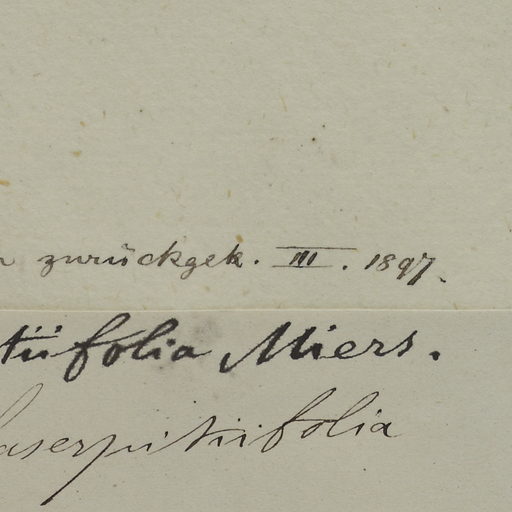 zurückgek. III. 1897.
tiifolia Miers.
laserpitiifolia